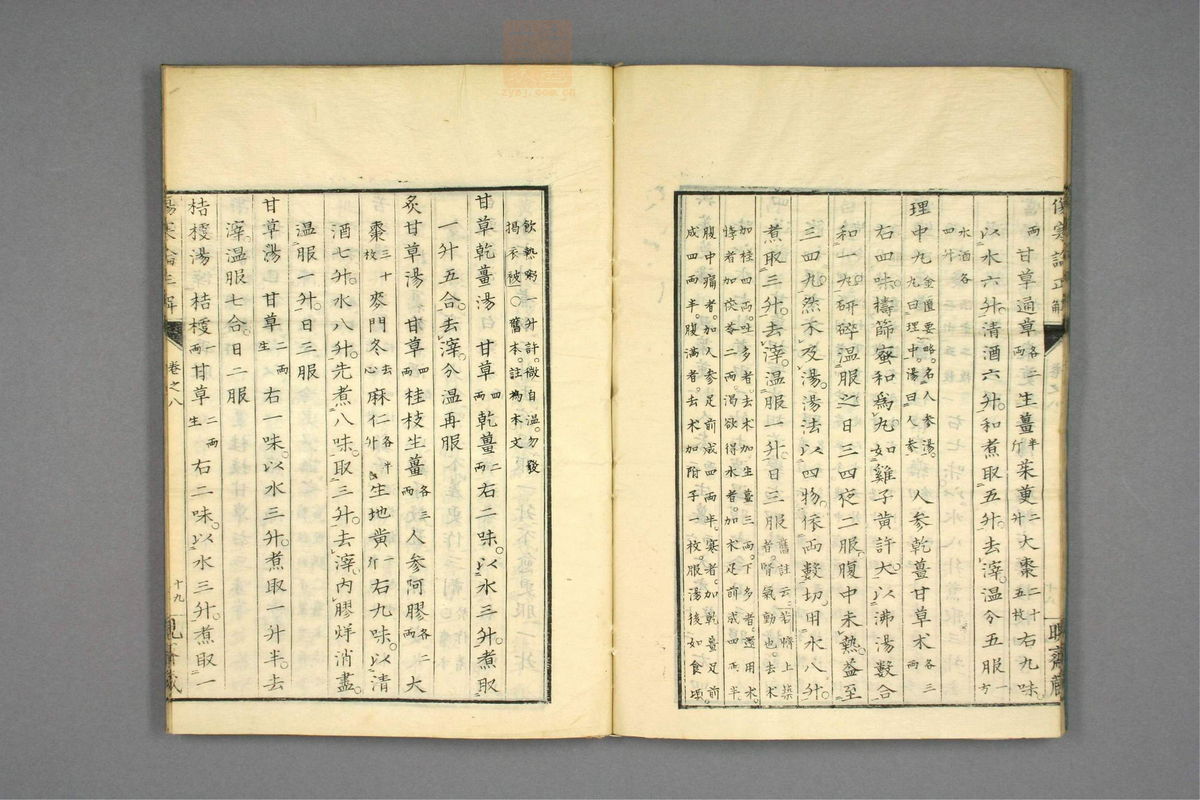 兩甘草通草各二兩生薑半斤茱萸二升大棗二十五枚右九味
以水六升清酒六升和煮取五升去滓溫分五服一方
水酒各四升
理中丸金匱要略名人參湯丸曰理中湯曰人參人參乾薑甘草朮各三兩
右四味擣篩蜜和為丸如雞子黃許大以沸湯數合
和一丸研碎溫服之日三四夜二服腹中未熱益至
三四丸然不及湯湯法以四物依兩數切用水八升
煮取三升去滓溫服一升日三服舊註云若臍上築者腎氣動也去朮
加桂四兩吐多者去朮加生薑三兩下多者還用朮
悸者加茯苓二兩渴欲得水者加朮足前成四兩半
腹中痛者加人參足前成四兩半寒者加乾薑足前
成四兩半腹滿者去朮加附子一枚服湯後如食頃
飲熱粥一升許微自溫勿發
揭衣被○舊本註為本文
甘草乾薑湯 甘草四兩乾薑二兩右二味以水三升煮取
一升五合去滓分溫再服
炙甘草湯 甘草四兩桂枝生薑各三兩人參阿膠各二兩大
棗三十枚麥門冬去心麻仁各半升生地黃一斤右九味以清
酒七升水八升先煮八味取三升去滓內膠烊消盡
溫服一升日三服
甘草湯 甘草二兩生右一味以水三升煮取一升半去
滓溫服七合日二服
桔梗湯 桔梗一兩甘草二兩生右二味以水三升煮取一
傷寒論正解
卷之八
十九